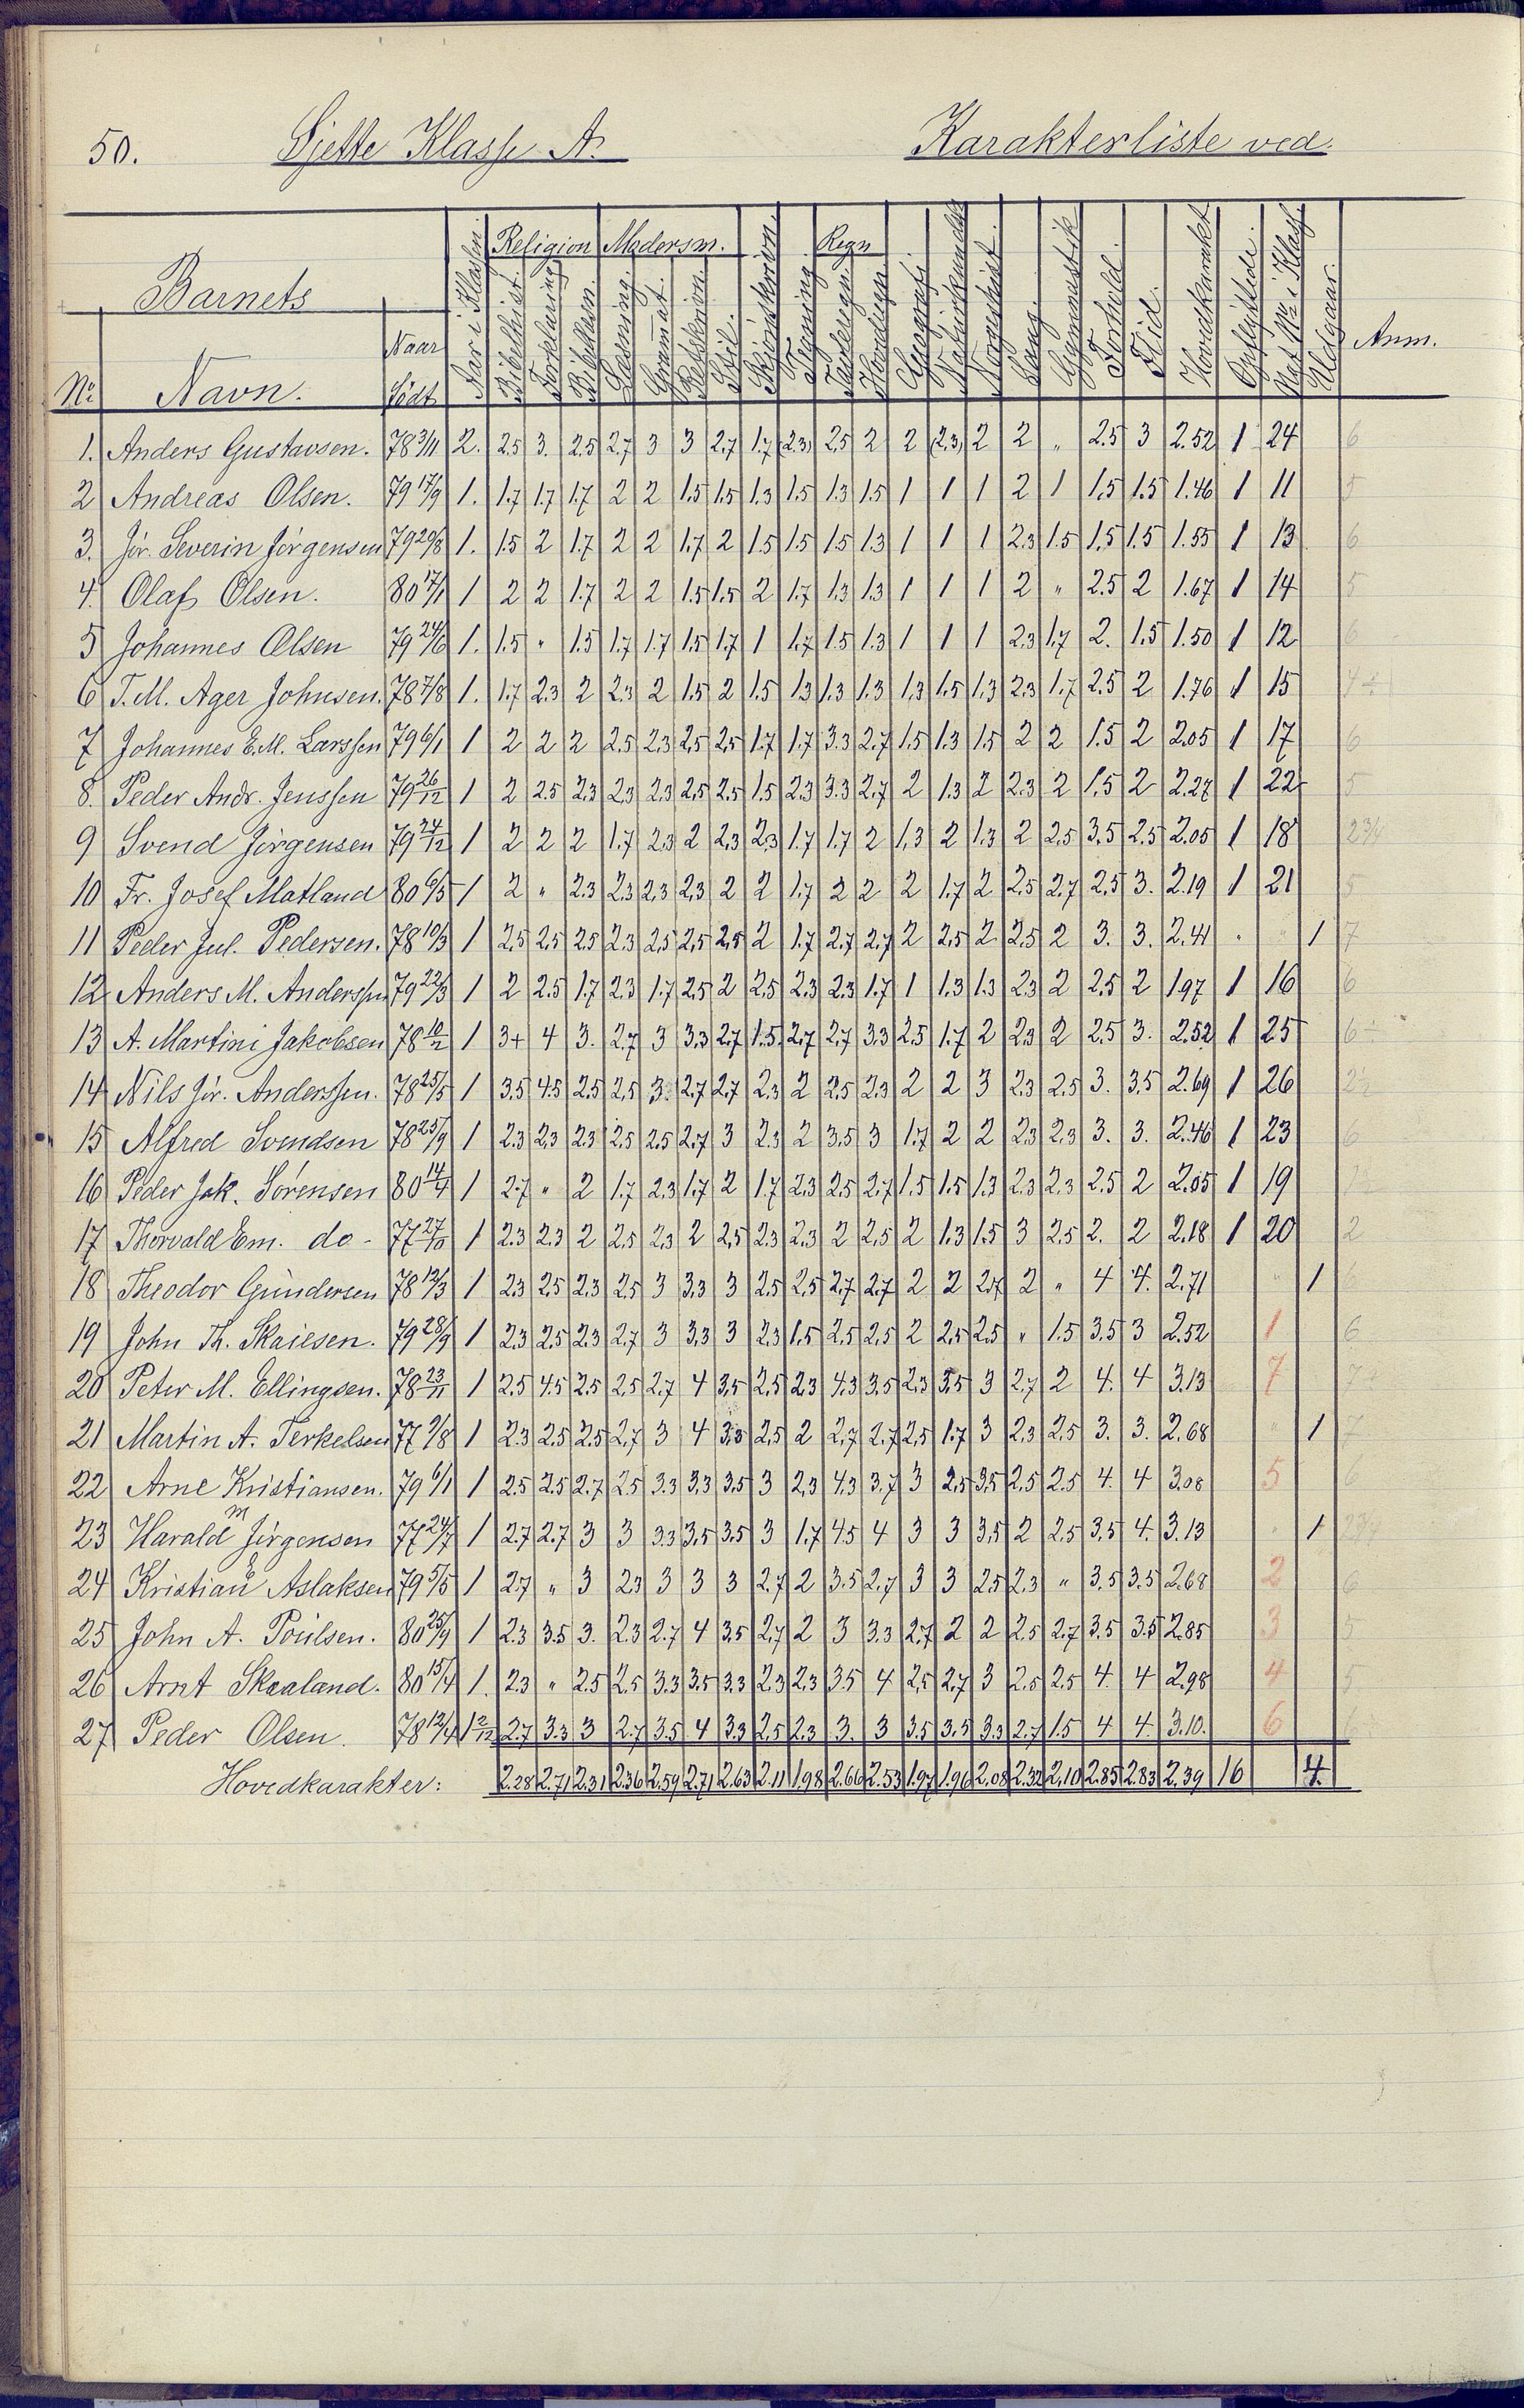 50. Sjette Klasse A. Karakterliste ved.
Barnets
Religion Modersm. Regn
No Navn. Naar Födt Aar i Klassen Bibelhist. Forklaring Bibellæsn. Læsning Gram̄at. Retskrivn. Stil. Skjönskrivn. Tegning Tavleregn Hovedregn Geografi Naturkundsk. Norgeshist. Sang. Gymnastik Forhold. Flid. Hovedkarakt. Opflyttede. Næst No i Klas Udgaar. Anm.
1. Anders Gustavsen. 78 3/11 2. 2.5 3. 2.5 2.7 3 3 2.7 1.7 (2.3) 2.5 2 2 (2.3) 2 2 „ 2.5 3 2.52 1 24 6
2 Andreas Olsen. 79 17/9 1. 1.7 1.7 1.7 2 2 1.5 1.5 1.3 1.5 1.3 1.5 1 1 1 2 1 1.5 1.5 1.46 1 11 5
3. Jör. Severin Jörgensen 79 20/8 1. 1.5 2 1.7 2 2 1.7 2 1.5 1.5 1.5 1.3 1 1 1 2.3 1.5 1.5 1.5 1.55 1 13 6
4. Olaf Olsen. 80 17/1 1 2 2 1.7 2 2 1.5 1.5 2 1.7 1.3 1.3 1 1 1 2 „ 2.5 2 1.67 1 14 5
5 Johannes Olsen 79 24/6 1. 1.5 „ 1.5 1.7 1.7 1.5 1.7 1 1.7 1.5 1.3 1 1 1 2.3 1.7 2. 1.5 1.50 1 12 6
6 T. M. Ager Johnsen. 78 7/8 1. 1.7 2.3 2 2.3 2 1.5 2 1.5 1.3 1.3 1.3 1.3 1.5 1.3 2.3 1.7 2.5 2 1.76 1 15
7 Johannes E. M. Larssen 79 6/1 1 2 2 2 2.5 2.3 2.5 2.5 1.7 1.7 3.3 2.7 1.5 1.3 1.5 2 2 1.5 2 2.05 1 17 6
8. Peder Andr. Jenssen 79 26/12 1 2 2.5 2.3 2.3 2.3 2.5 2.5 1.5 2.3 3.3 2.7 2 1.3 2 2.3 2 1.5 2 2.27 1 22 5
9 Svend Jörgensen 79 24/12 1 2 2 2 1.7 2.3 2 2.3 2.3 1.7 1.7 2 1.3 2 1.3 2 2.5 3.5 2.5 2.05 1 18 2 3/4
10 Fr. Josef Matland 80 6/5 1 2 „ 2.3 2.3 2.3 2.3 2 2 1.7 2 2 2 1.7 2 2.5 2.7 2.5 3. 2.19 1 21 5
11 Peder Jul. Pedersen. 78 10/3 1 2.5 2.5 2.5 2.3 2.5 2.5 2.5 2 1.7 2.7 2.7 2 2.5 2 2.5 2 3. 3. 2.41 „ „ 1 7
12 Anders M. Anderssen 79 22/3 1 2 2.5 1.7 2.3 1.7 2.5 2 2.5 2.3 2.3 1.7 1 1.3 1.3 2.3 2 2.5 2 1.97 1 16 6
13 A. Martini Jakobsen 78 10/2 1 3+ 4 3. 2.7 3 3.3 2.7 1.5 2.7 2.7 3.3 2.5 1.7 2 2.3 2 2.5 3. 2.52 1 25 6
14 Nils Jör. Anderssen. 78 25/5 1 3.5 4.5 2.5 2.5 3. 2.7 2.7 2.3 2 2.5 2.3 2 2 3 2.3 2.5 3. 3.5 2.69 1 26
15 Alfred Svendsen 78 25/9 1 2.3 2.3 2.3 2.5 2.5 2.7 3 2.3 2 3.5 3 1.7 2 2 2.3 2.3 3. 3. 2.46 1 23 6
16 Peder Jak. Sörensen 80 14/4 1 2.7 „ 2 1.7 2.3 1.7 2 1.7 2.3 2.5 2.7 1.5 1.5 1.3 2.3 2.3 2.5 2 2.05 1 19
17 Thorvald Em. do - 77 27/10 1 2.3 2.3 2 2.5 2.3 2 2.5 2.3 2.3 2 2.5 2 1.3 1.5 3 2.5 2. 2 2.18 1 20 2
18 Theodor Gundersen 78 12/3 1 2.3 2.5 2.3 2.5 3 3.3 3 2.5 2.5 2.7 2.7 2 2 2.7 2 „ 4 4. 2.71 „ 1 6
19 John Th. Skaiesen. 79 28/9 1 2.3 2.5 2.3 2.7 3 3.3 3 2.3 1.5 2.5 2.5 2 2.5 2.5 „ 1.5 3.5 3 2.52 1 6
20 Peter M. Ellingsen. 78 23/11 1 2.5 4.5 2.5 2.5 2.7 4 3.5 2.5 2.3 4.3 3.5 2.3 3.5 3 2.7 2 4. 4 3.13 7 7
21 Martin A. Terkelsen 77 9/8 1 2.3 2.5 2.5 2.7 3 4 3.3 2.5 2 2.7 2.7 2.5 1.7 3 2.3 2.5 3. 3. 2.68 „ 1 7
22 Arne Kristiansen. 79 6/1 1 2.5 2.5 2.7 2.5 3.3 3.3 3.5 3 2.3 4.3 3.7 3 2.5 3.5 2.5 2.5 4. 4 3.08 5 6
23 Harald M Jörgensen 77 24/7 1 2.7 2.7 3 3 3.3 3.5 3.5 3 1.7 4.5 4 3 3 3.5 2 2.5 3.5 4. 3.13 „ 1
24 Kristian Aslaksen 79 5/5 1 2.7 „ 3 2.3 3 3 3 2.7 2 3.5 2.7 3 3 2.5 2.3 „ 3.5 3.5 2.68 2 6
25 John A. Poulsen. 80 25/9 1 2.3 3.5 3. 2.3 2.7 4 3.5 2.7 2 3 3.3 2.7 2 2 2.5 2.7 3.5 3.5 2.85 3 5
26 Arnt Skaaland. 80 15/4 1. 2.3 „ 2.5 2.5 3.3 3.5 3.3 2.3 2.3 3.5 4 2.5 2.7 3 2.5 2.5 4. 4 2.98 4 5
27 Peder Olsen. 78 12/4 1 2/12 2.7 3.3 3 2.7 3.5 4 3.3 2.5 2.3 3. 3 3.5 3.5 3.3 2.7 1.5 4 4. 3.10. 6 6
Hovedkarakter: 2.28 2.71 2.31 2.36 2.59 2.71 2.63 2.11 1.98 2.66 2.53 1.97 1.96 2.08 2.32 2.10 2.85 2.83 2.39 16 4.